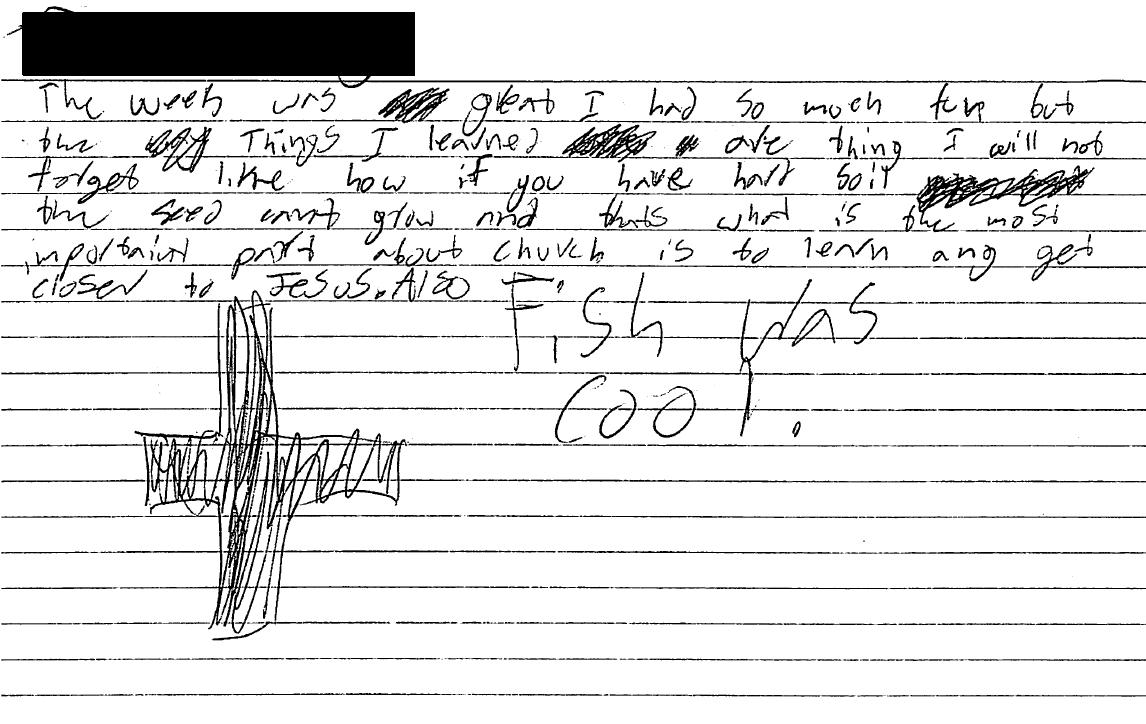 The week was great I had so much fun but
the Things I learned are thing I will not
forget like how if you have hard soil
the seed cannt grow and thats what is the most
importaint part about church is to learn ang get
closer to Jesus. Also Fish was
cool.